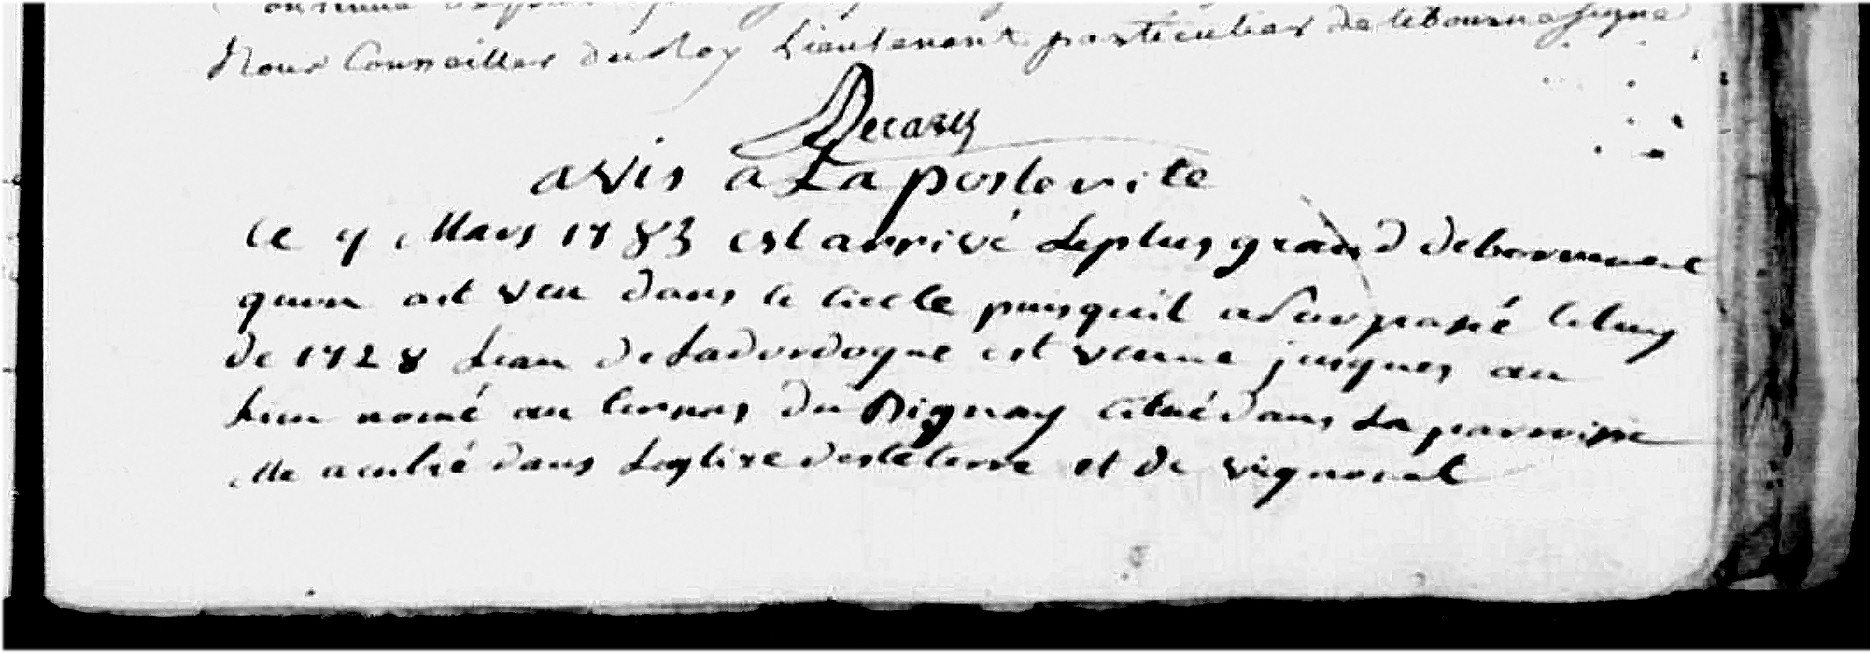 Nour Conseiller du Roy Lieutenant particulier de libourne signé
Decazes
avis a La posterite
le 7 Mars 1783 est arrivé Leplus grand debordement
quon ait veu dans le siecle puisquil a surpassé celuy
de 1728 Leau de Ladordogne est venue jusques au
lieu nomé au ternas du Pignoy situé dans La parroisse
elle a entré dans Leglise de steterre et de vignonet